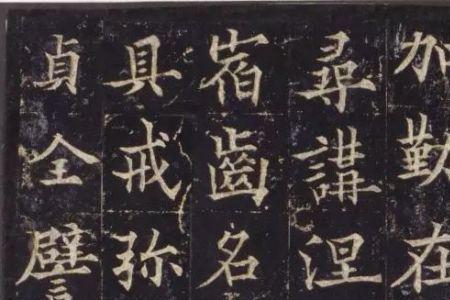 加勤在
尋講涅
宿齒名
具戒弥
貞全譬